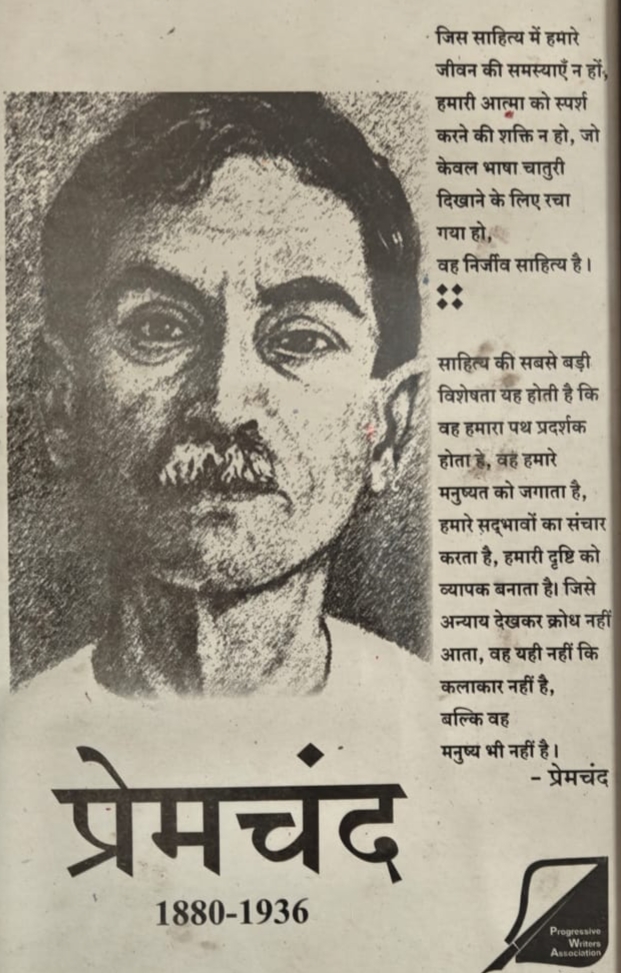 जिस साहित्य में हमारे
जीवन की समस्याएँ न हों,
हमारी आत्मा को स्पर्श
करने की शक्ति न हो, जो
केवल भाषा चातुरी
दिखाने के लिए रचा
गया हो,
वह निर्जीव साहित्य है।
साहित्य की सबसे बड़ी
विशेषता यह होती है कि
वह हमारा पथ प्रदर्शक
होता है, वह हमारे
मनुष्यत को जगाता है,
हमारे सद्भावों का संचार
करता है, हमारी दृष्टि को
व्यापक बनाता है। जिसे
अन्याय देखकर क्रोध नहीं
आता, वह यही नहीं कि
कलाकार नहीं है,
बल्कि वह
मनुष्य भी नहीं है।
- प्रेमचंद
प्रेमचंद
1880-1936
Progressive
Writers
Association